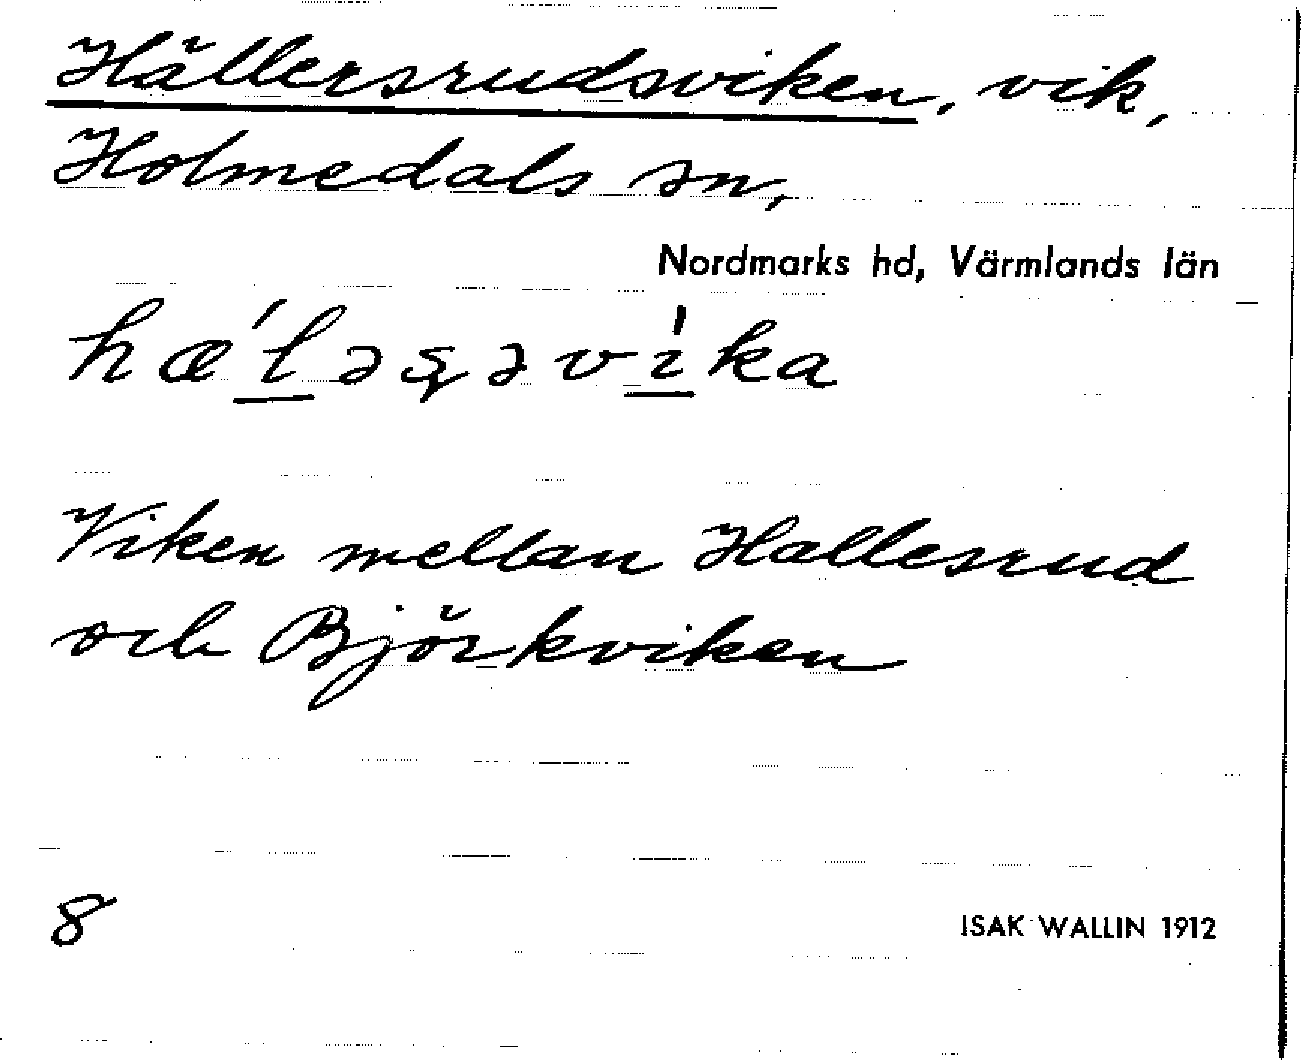 Hällersrudsviken, vik,
Holmedals sn,
Nordmarks hd, Värmlands län
hǽləʂəvı̍ka
Viken mellan Hallesrud
och Björkviken
8
ISAK WALLIN 1912